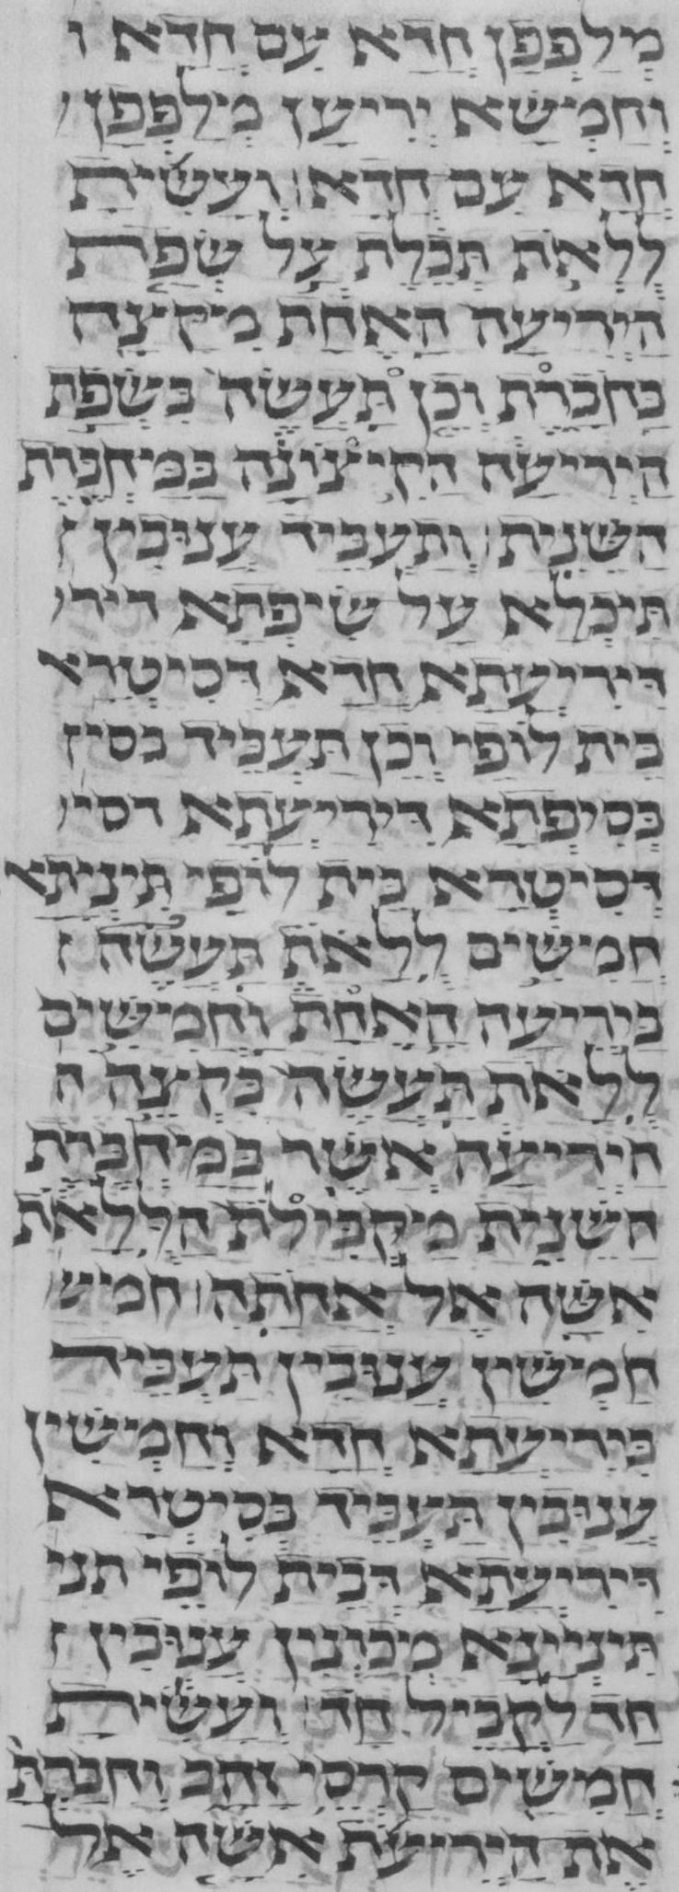 מְלַפְּפָן חֲדָא עִם חֲדָא ו
וַחֲמִישָׁא יְרִיעָן מְילַפְּפָן י
חֲדָא עִם חֲדָא׃ וְעָשִׂיתָ
לֻלְאֹת תְּכֵלֶת עַל שְׂפַת
הַיְרִיעָה הָאֶחָת מִקָּצָה
בַּחֹבָרֶת וְכֵן תַּעֲשֶׂה בִּשְׂפַת
הַיְרִיעָה הַקִּיצוֹנָה בַּמַּחְבֶּרֶת
הַשֵּׁנִית׃ וְתַעְבֵּיד עֲנוּבִין ז
תִּיכְלָא עַל שִׂיפְתָא דירי
דִּירִיעְתָא חֲדָא דְּסִיטְרָא
בֵּית לוֹפֵי וְכֵן תַּעְבֵּיד בסיז
בְּסִיפְתָא דִּירִיעְתָא דסיי
דְּסִיטְרָא בֵּית לוֹפֵי תִּינְיֵתָא
חֲמִישִּׁים לֻלָאֹת תַּעֲשֶׂה ז
בַּיְרִיעָה הָאֶחָת וַחֲמִישִּׁים
לֻלָאֹת תַּעֲשֶׂה בִּקְצֵה ה
הַיְרִיעָה אֲשֶׁר בַּמַּחְבֶּרֶת
הַשֵּׁנִית מַקְבִּילֹת הַלֻּלָאֹת
אִשָּׁה אֶל אֲחֹתָהּ׃ חמיש
חַמְישִׁין עֲנוּבִין תַּעְבֵּיד
בִּירִיעְתָא חֲדָא וְחַמְישִׁין
עֲנוּבִין תַּעְבֵּיד בְּסִיטְרָא
דִּירִיעְתָא דְּבֵית לוֹפֵי תני
תִּינְיֵינָא מְכַוְּנָן עֲנוּבִין ז
חַד לָקֳבֵיל חַד׃ וְעָשִׂיתָ
חֲמִשִּׁים קַרְסֵי זָהָב וְחִבַּרְתָּ
אֶת הַיְרִיעֹת אִשָּׁה אֶל